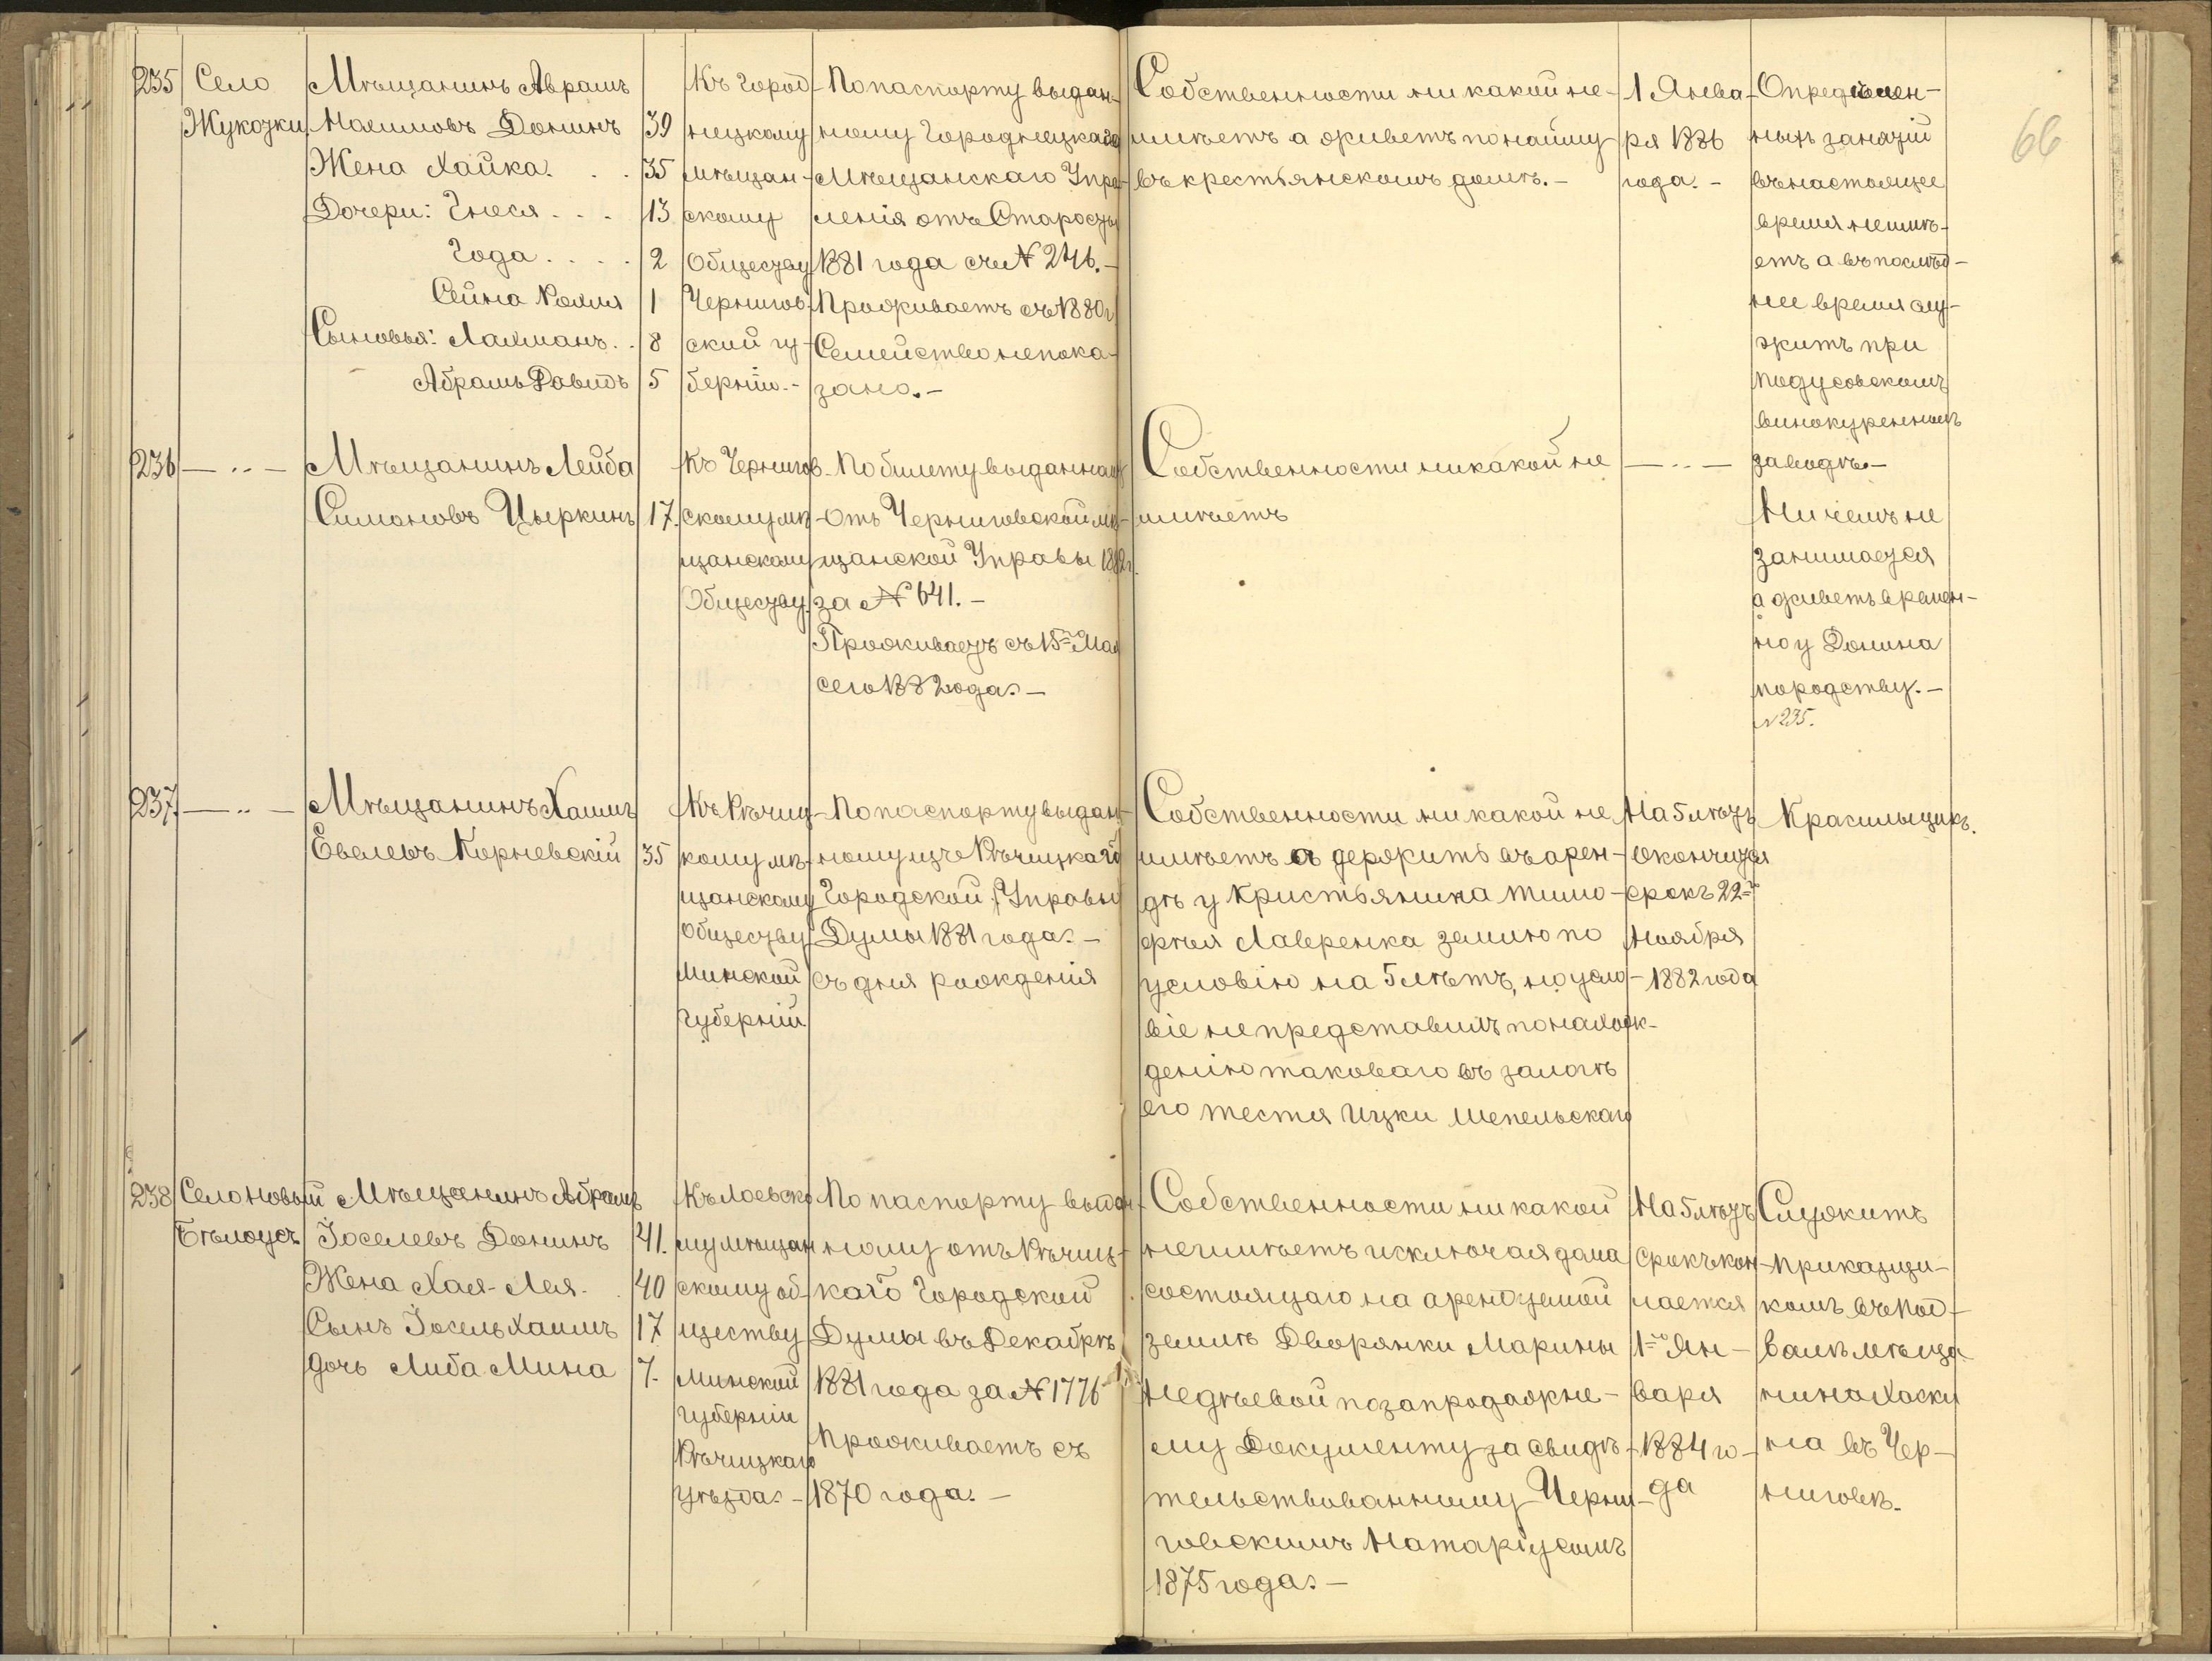 66
235
Село
Жукозки
Мѣщанинъ Аврамъ
Нахимовъ Донинъ 39
Жена Хайка. . . 35
Дочери: Гнеся . . . 13
Года . . . . 2
Сейна Рохля 1
Сыновья: Лахманъ . . 8
Абрамъ Давидъ 5
Къ Город-
ницкому
мѣщан-
скому
Обществу
Чернигов-
ской гу-
берніи.-
По паспорту выдан-
ному Городницкаго
Мѣщанскаго Упра-
ленія отъ Старосты
1881 года съ № 246.-
Проживаетъ съ 1880 г.
Семейство непока-
зано.-
Собственности никакой не-
имѣетъ а живетъ по найму
въ крестьянскомъ домѣ.-
1 Янва-
ря 1886
года.-
Опредѣлен-
ныхъ занятій
въ настоящее
время не имѣ-
етъ а въ послѣд-
нее время слу-
житъ при
подусовскомъ
винокуренномъ
заводѣ.-
236
— .. —
Мѣщанинъ Лейба
Симоновъ Цыркинъ 17.
Къ Чернигов-
скому мѣ-
щанскому
Обществу.
По билету выданному
отъ Черниговской мѣ-
щанской Управы 1882 г.
за № 641.-
Проживаетъ съ 15= Мая
сего 1882 года.-
Собственности никакой не
имѣетъ
— .. —
Ни чемъ не
занимается
а живетъ времен-
но у Донина
по родству.-
№ 235.
237
— .. —
Мѣщанинъ Хаимъ
Евелевъ Корневскій 35
Къ Рѣчиц-
кому мѣ-
щанскому
Обществу
Минской
Губерніи.
По паспорту выдан-
ному изъ Рѣчицкаго
Городской Управы
Думы 1881 года.-
съ дня рожденія
Собственности никакой не
имѣетъ а держитъ въ арен-
дѣ у Кристьянина Тимо-
фѣя Лаверенка землю по
условію на 5 лѣтъ, но усло-
віе не представилъ по нахож-
денію таковаго въ залогѣ
его тестя Ицки Шепельскаго
На 5 лѣтъ
окончится
срокъ 22=го
Ноября
1882 года
Красильщикъ.
238
Село новый
Бѣлоусъ
Мѣщанинъ Абрамъ
Іоселевъ Донинъ 41.
Жена Хая-Лея. . 40
Сынъ Іосель Хаимъ 17
дочь Либа Мина 7.
Къ Лоевско-
му мѣщан
скому об-
ществу
Минской
Губерніи
Рѣчицкаго
уѣзда.-
По паспорту выдан-
ному отъ Рѣчиц-
каго Городской
Думы въ Декабрѣ
1881 года за № 1776
проживаетъ съ
1870 года.-
Собственности никакой
не имѣетъ исключая дома
состоящаго на арендуемой
землѣ Дворянки Марины
Недѣевой по запродажне-
му Документу за свидѣ-
тельствованному Черни-
говскимъ Натаріусомъ
1875 года.-
На 5 лѣтъ
срокъ кон-
чается
1=го Ян-
варя
1884 го-
да
Служитъ
приказщи-
комъ въ под-
валѣ мѣща-
нина Хаски
на въ Чер-
ниговѣ.